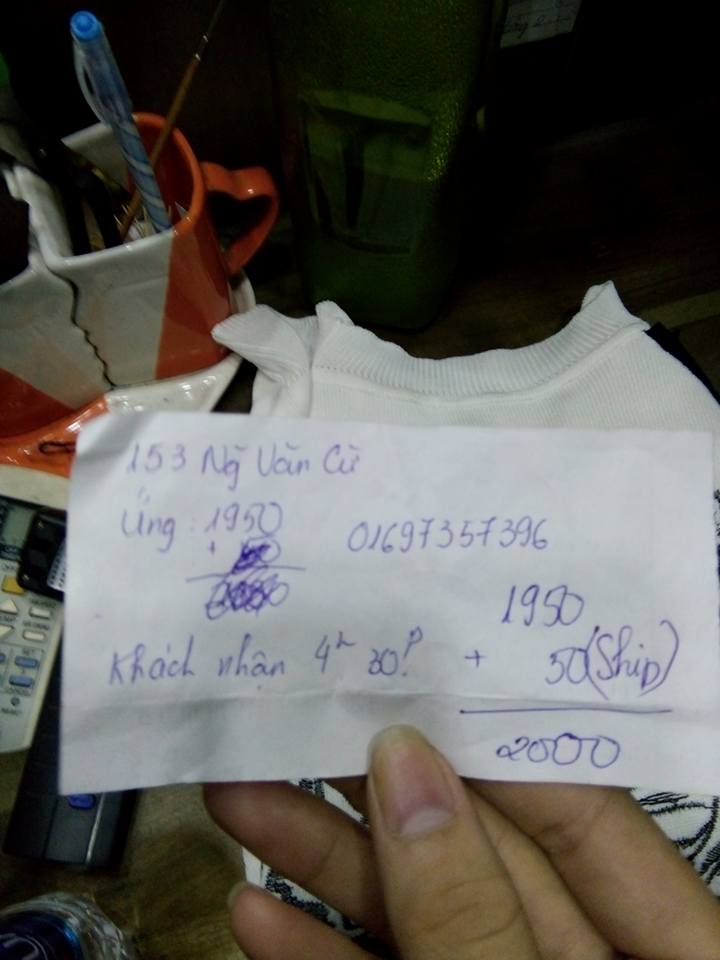 153 Ng̃ Văn Cừ
Ứng : 1950
01697357396
+ 50
Khách nhận 4h 30p
1950
+ 50 (Ship)
2000